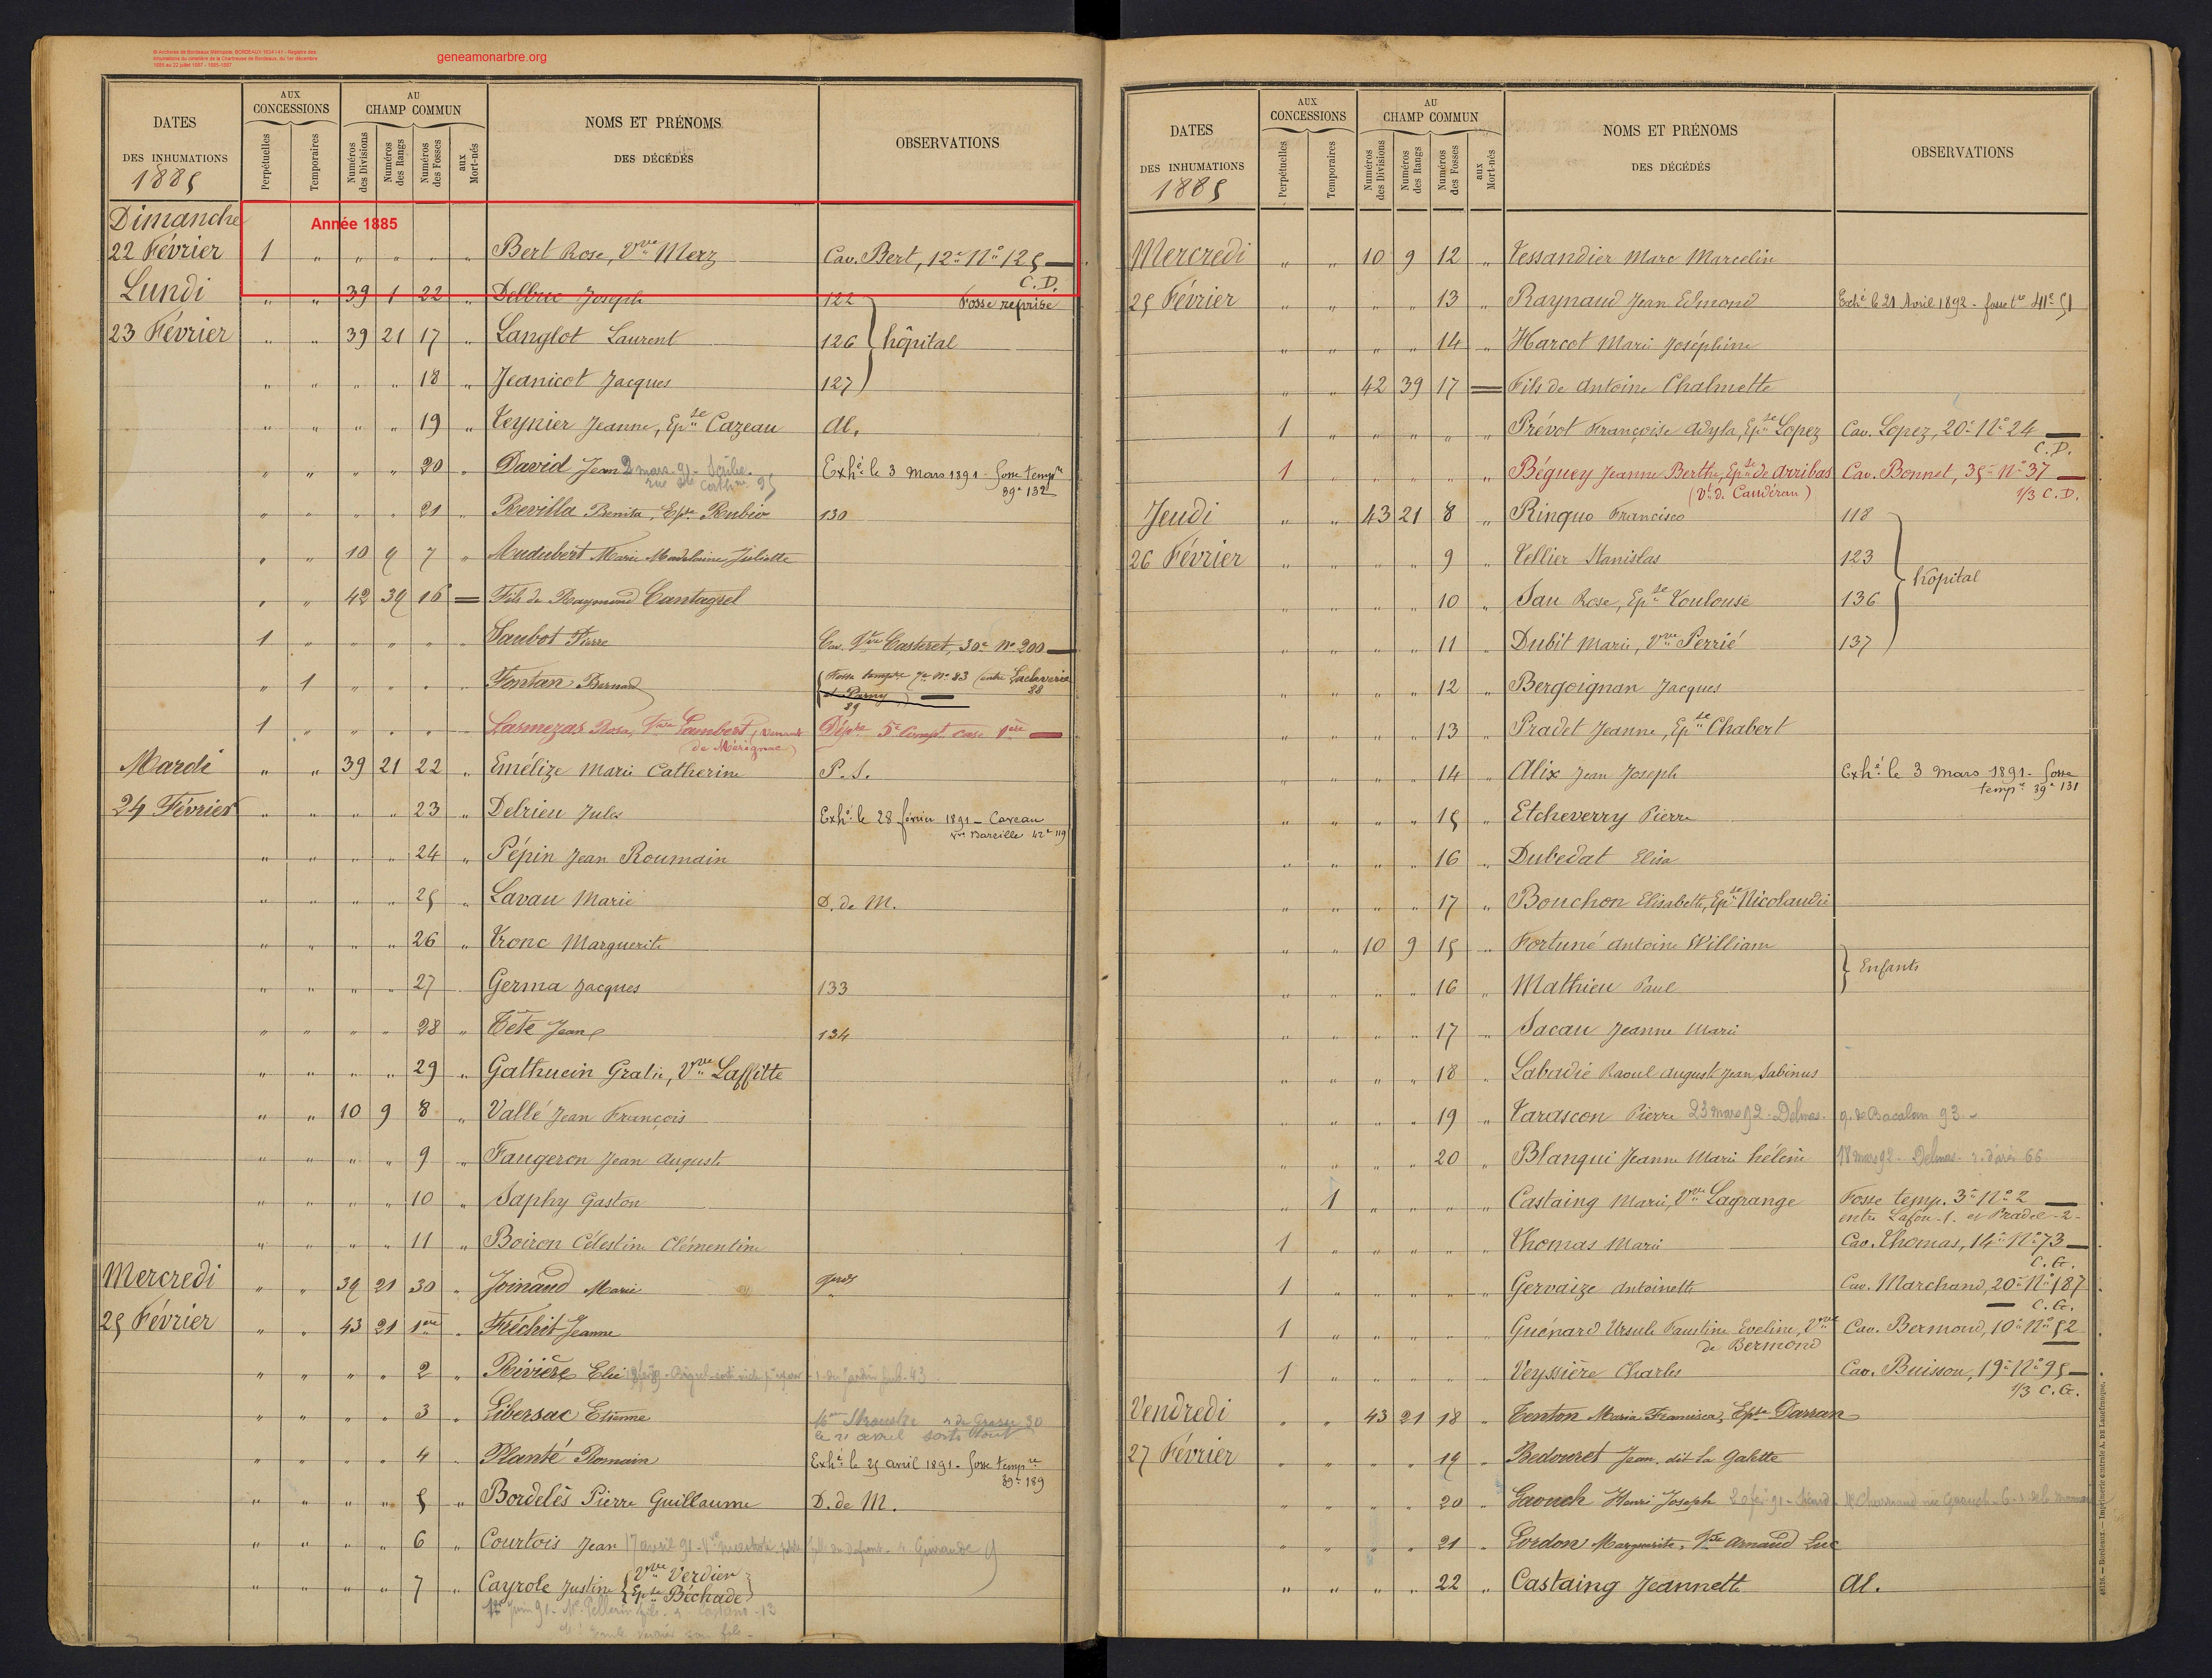 © Archives de Bordeaux Métropole, BORDEAUX 1634 I 41 - Registre des
inhumations du cimetière de la Chartreuse de Bordeaux, du 1er décembre
1885 au 22 juillet 1887 - 1885-1887
geneamonarbre.org
DATES DES INHUMATIONS 1885
AUX CONCESSIONS Perpétuelles Temporaires
AU CHAMP COMMUN Numéros des Divisions Numéros des Rangs Numéros des Fosses aux Mort-nés
NOMS ET PRÉNOMS DES DÉCÉDÉS
OBSERVATIONS
Année 1885
Dimanche
22 Février 1 " " " " " Bert Rose, Vve Merz Cav. Bert, 12e No 125
C.D.
Lundi " " 39 1 22 " Delbuc Joseph 122 Fosse reprise
23 Février " " 39 21 17 " Langlot Laurent 126 hôpital
" " " " 18 " Jeanicot Jacques 127
" " " " 19 " Teynier Jeanne, Epse Cazeau Al.
" " " " 20 " David Jean Exhé le 3 Mars 1891 - fosse tempre
39e 132
" " " " 21 " Revilla Benita, Epse Rubio 130
" " 10 9 7 " Audubert Marie Madelaine Juliette
" " 42 39 16 = Fils de Raymond Cantagrel
1 " " " " " Saubot Pierre Cav. Vve Casteret, 30e No 200
" 1 " " " " Fontan Bernard Fosse tempre 7e No 83 (entre Laclaverie
88
et Parny)
89
1 " " " " " Lasmezas Rosa, Vve Lambert, (venant Dépre 5e Compt case 1ère
de Mérignac)
Mardi " " 39 21 22 " Emélize Marie Catherine P.S.
24 Février " " " " 23 " Delrieu Jules Exhé le 28 février 1891 - Caveau
Vve Bareille 42e 119
" " " " 24 " Pépin Jean Roumain
" " " " 25 " Lavau Marie D. de M.
" " " " 26 " Tronc Marguerite
" " " " 27 Germa Jacques 133
" " " " 28 " Tête Jean 134
" " " " 29 " Gathuein Gratie, Vve Laffitte
" " 10 9 8 " Vallé Jean François
" " " " 9 " Faugeron Jean Auguste
" " " " 10 " Saphy Gaston
" " " " 11 " Boiron Célestine Clémentine
Mercredi " " 39 21 30 " Joinaud Marie
25 Février " " 43 21 1ère " Fréchit Jeanne
" " " " 2 " Rivière Elie
" " " " 3 " Libersac Etienne
" " " " 4 " Planté Romain Exhé le 25 avril 1891 - fosse tempre
39e 189
" " " " 5 " Bordelès Pierre Guillaume D. de M.
" " " " 6 " Courtois Jean 17 avril 91
" " " " 7 " Cayrole Justine Vve Verdier
Epse Béchade
DATES DES INHUMATIONS 1885
AUX CONCESSIONS Perpétuelles Temporaires
AU CHAMP COMMUN Numéros des Divisions Numéros des Rangs Numéros des Fosses aux Mort-nés
NOMS ET PRÉNOMS DES DÉCÉDÉS
OBSERVATIONS
Mercredi " " 10 9 12 " Tessandier Marc Marcelin
25 Février " " " " 13 " Raynaud Jean Edmond Exhé le 21 Avril 1892 - fosse tre 41e 51
" " " " 14 " Harcot Marie Joséphine
" " 42 39 17 = Fils de Antoine Chalmette
1 " " " " " Prévot Françoise Adyla, Epse Lopez Cav. Lopez, 20e No 24
C.D.
1 " " " " " Béguey Jeanne Berthe, Epse de Arribas Cav. Bonnet, 35e No 37
(Vt de Caudéran) 1/3 C.D.
Jeudi " " 43 21 8 " Rinquo Francisco 118
26 Février " " " " 9 " Tellier Stanislas 123
hôpital
" " " " 10 " Sau Rose, Epse Toulouse 136
" " " " 11 " Dubit Marie, Vve Perrié 137
" " " " 12 " Bergoignan Jacques
" " " " 13 " Pradet Jeanne, Epse Chabert
" " " " 14 " Alix Jean Joseph Exhé le 3 Mars 1891 - fosse
tempre 39e 131
" " " " 15 " Etcheverry Pierre
" " " " 16 " Dubedat Elisa
" " " " 17 " Bouchon Elisabeth, Epse Nicolaudie
" " 10 9 15 " Fortuné Antoine William
Enfants
" " " " 16 " Mathieu Paul
" " " " 17 " Sacau Jeanne Marie
" " " " 18 " Labadie Raoul Auguste Jean Sabinus
" " " " 19 " Tarascon Pierre 23 mars 92 - Delmas - q. de Bacalan 93
" " " " 20 " Blanqui Jeanne Marie hélène 18 mars 92 - Delmas - r. d'arès 66
" 1 " " " " Castaing Marie, Vve Lagrange Fosse temp. 3e No 2
entre Lafon - 1. et Pradel - 2 -
1 " " " " " Thomas Marie Cav. Thomas, 14e No 73
C.G.
1 " " " " " Gervaize Antoinette Cav. Marchand, 20e No 187
C.G.
1 " " " " " Guénard Ursule Faustine Eveline, Vve Cav. Bermond, 10e No 52
de Bermond
1 " " " " " Veyssière Charles Cav. Buisson, 19e No 95
1/3 C.G.
Vendredi " " 43 21 18 " Tenton Maria Francisca, Epse Darran
27 Février " " " " 19 " Bedouret Jean, dit la Galette
" " " " 20 " Gaouch Henri Joseph
" " " " 21 " Lordon Marguerite, Vve Arnaud Luc
" " " " 22 " Castaing Jeannette Al.
Bordeaux. — Imprimerie centrale A. DE LANEFRANQUE.